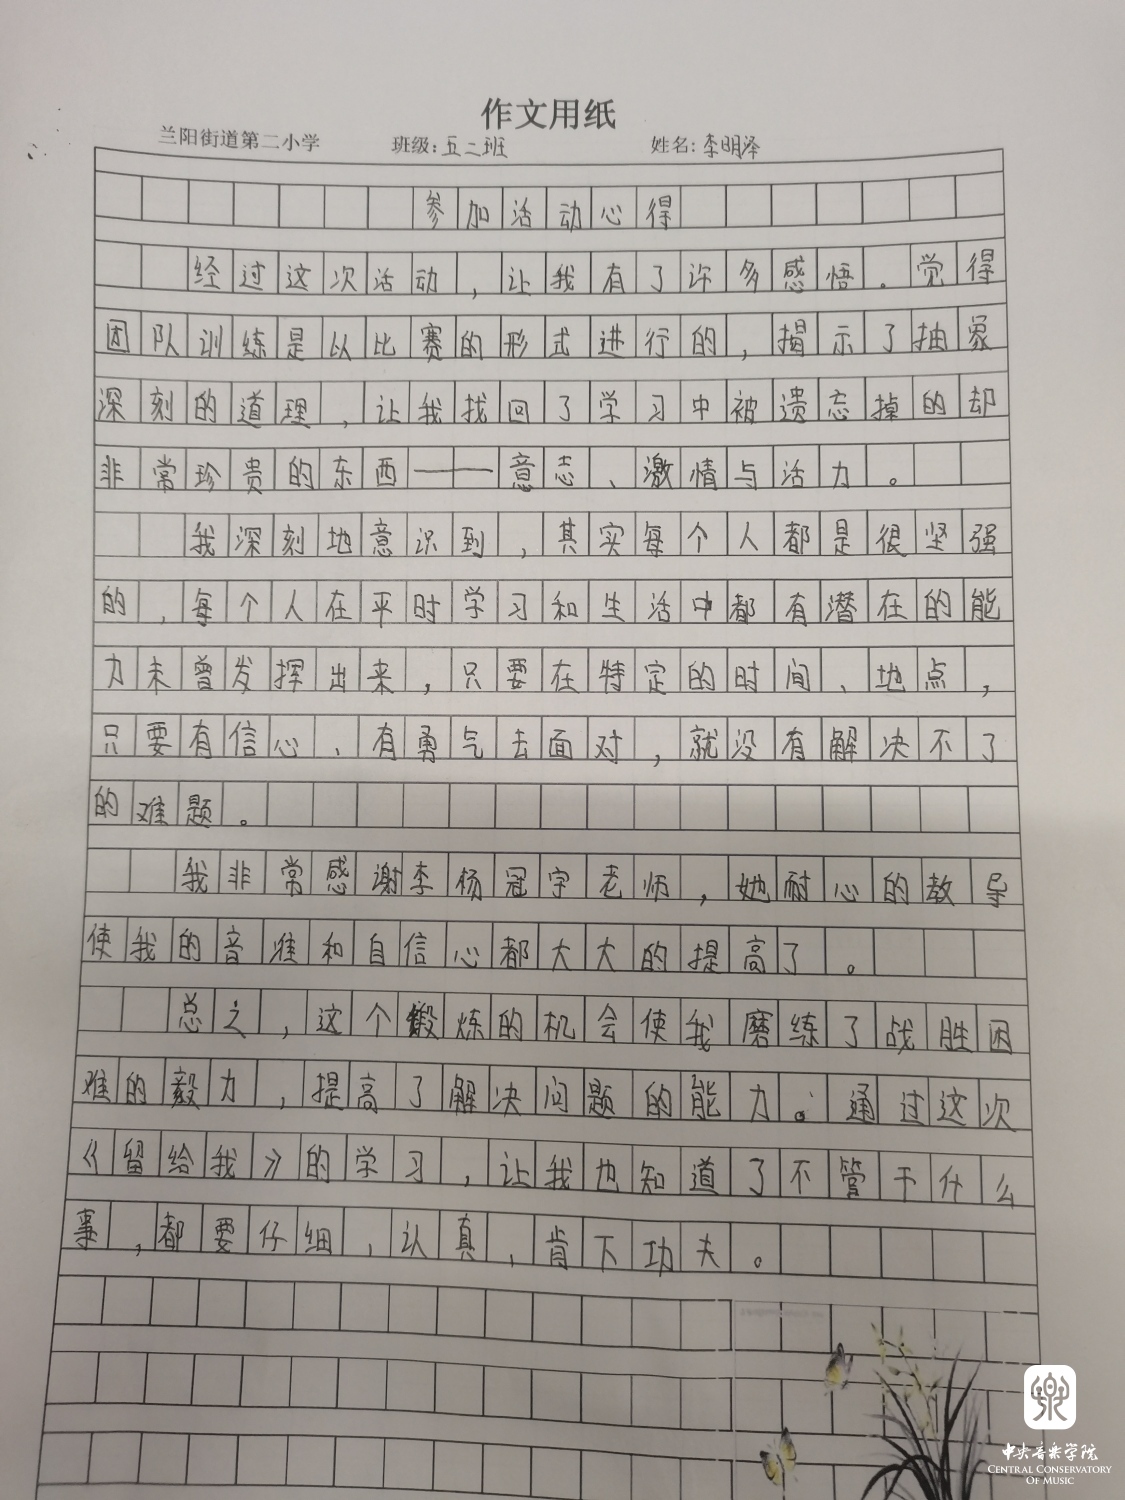 作文用纸
兰阳街道第二小学 班级:五二班 姓名:李明泽
参加活动心得
经过这次活动,让我有了许多感悟。觉得
团队训练是以比赛的形式进行的,揭示了抽象
深刻的道理,让我找回了学习中被遗忘掉的却
非常珍贵的东西——意志、激情与活力。
我深刻地意识到,其实每个人都是很坚强
的,每个人在平时学习和生活中都有潜在的能
力未曾发挥出来,只要在特定的时间、地点,
只要有信心、有勇气去面对,就没有解决不了
的难题。
我非常感谢李杨冠宇老师,她耐心的教导
使我的音准和自信心都大大的提高了。
总之,这个锻炼的机会使我磨练了战胜困
难的毅力,提高了解决问题的能力。通过这次
《留给我》的学习,让我也知道了不管干什么
事,都要仔细,认真,肯下功夫。
中央音乐学院
CENTRAL CONSERVATORY
OF MUSIC